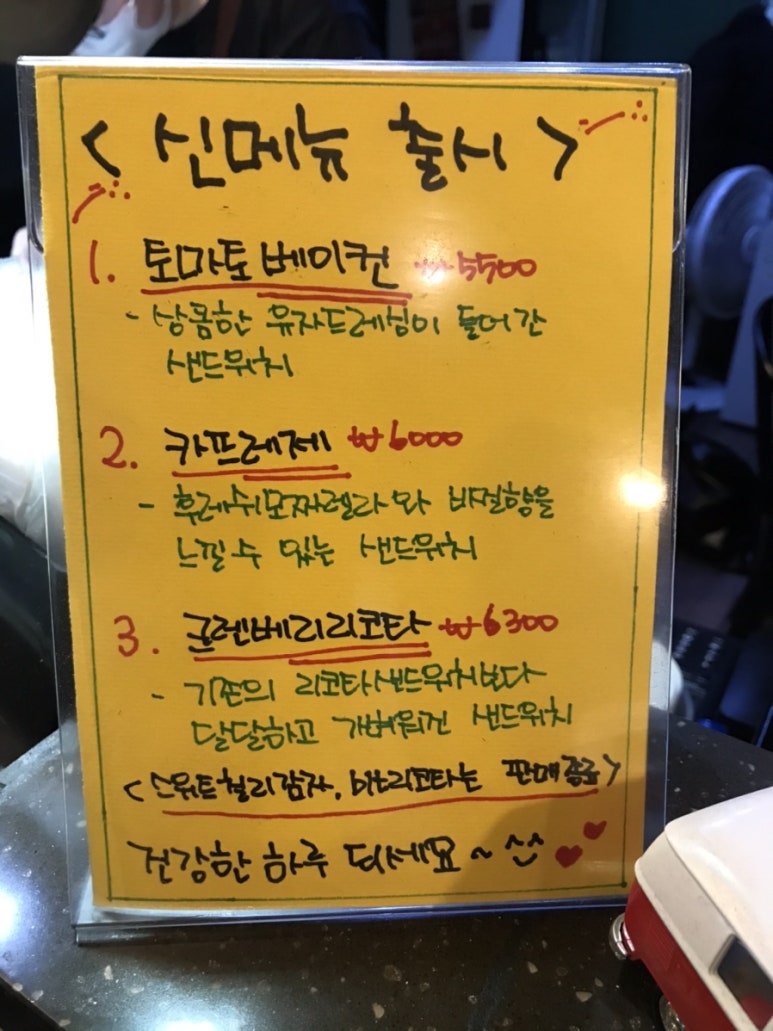 < 신메뉴 출시 >
1. 토마토베이컨 ₩5500
- 상큼한 유자드레싱이 들어간
샌드위치
2. 카프레제 ₩6000
- 후레쉬모짜렐라와 바질향을
느낄 수 있는 샌드위치
3. 크렌베리리코타 ₩6300
- 기존의 리코타샌드위치보다
달달하고 가벼워진 샌드위치
<스위트칠리감자, 리코타는 판매중지>
건강한 하루 되세요~ ^^ ♥♥